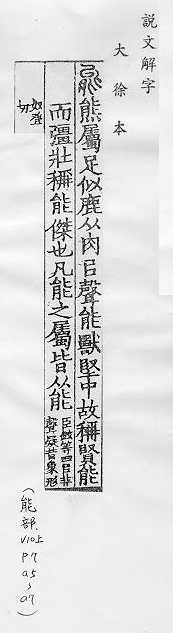 説文解字
大徐本
能熊屬足似鹿从肉㠯聲能獸堅中故稱賢能
而彊壯稱能傑也凡能之屬皆从能
臣鉉等曰㠯非
聲疑皆象形
奴登
切
(能部 V10上 P7 a5~a7)